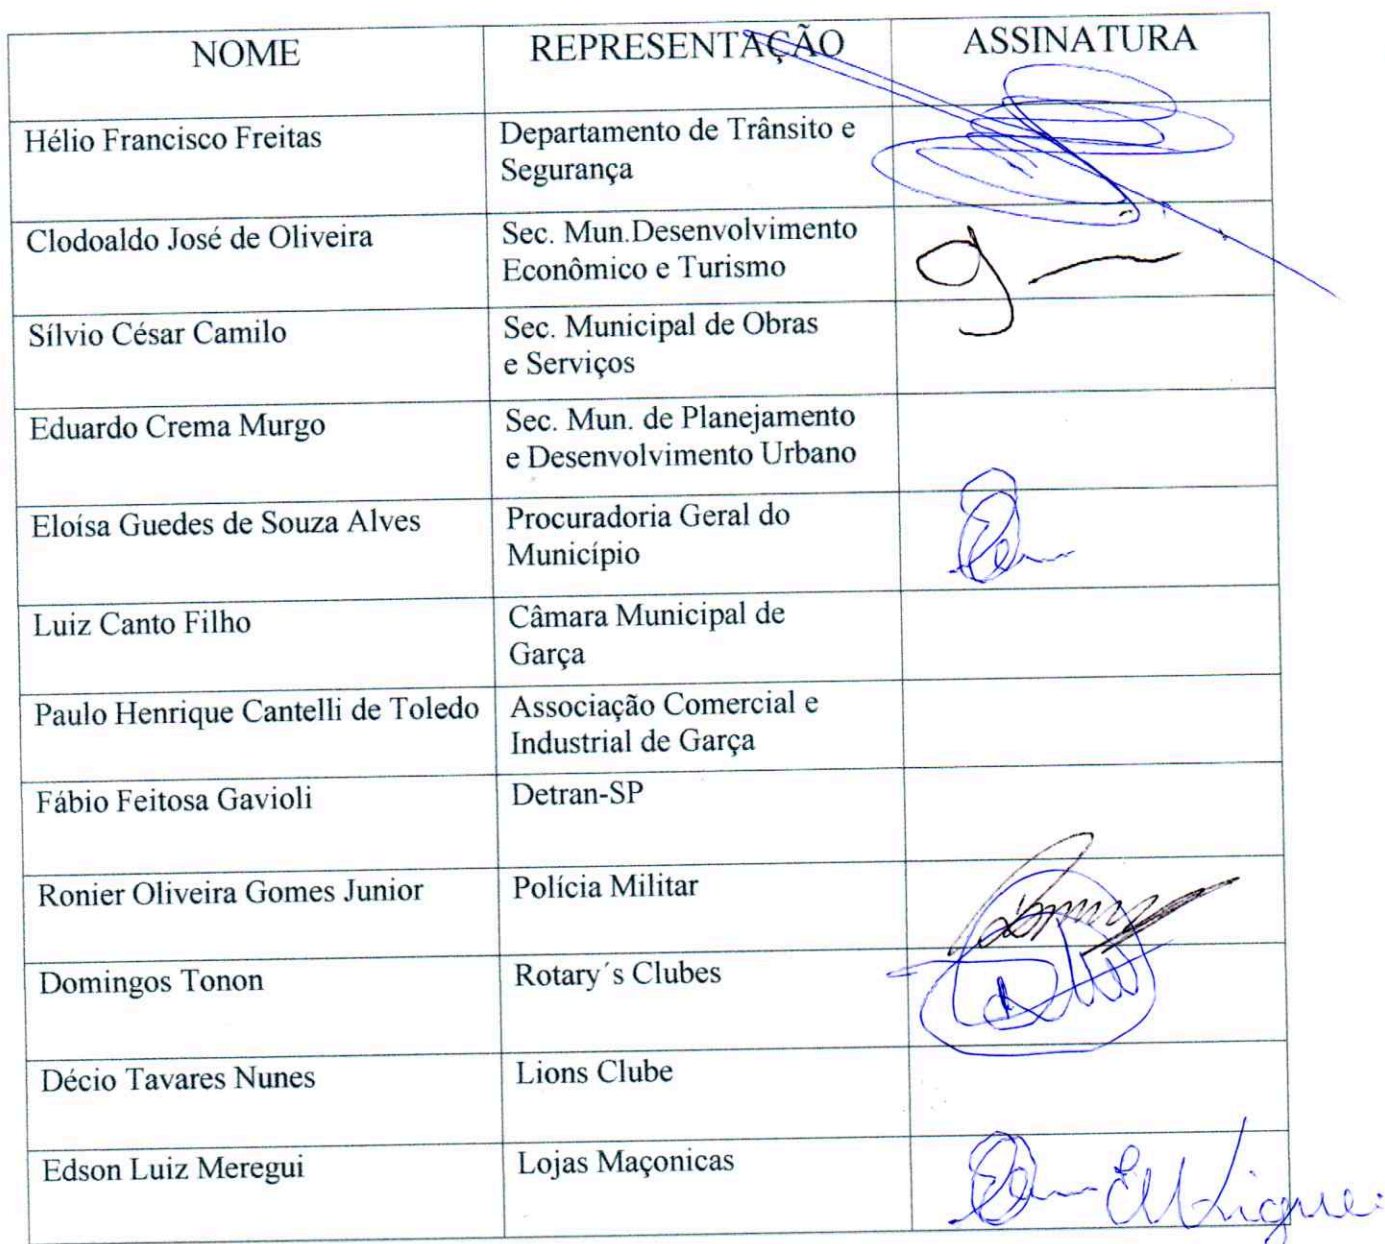 NOME REPRESENTAÇÃO ASSINATURA
Hélio Francisco Freitas
Departamento de Trânsito e
Segurança
Clodoaldo José de Oliveira
Sec. Mun.Desenvolvimento
Econômico e Turismo
Sílvio César Camilo
Sec. Municipal de Obras
e Serviços
Eduardo Crema Murgo
Sec. Mun. de Planejamento
e Desenvolvimento Urbano
Eloísa Guedes de Souza Alves
Procuradoria Geral do
Município
Luiz Canto Filho
Câmara Municipal de
Garça
Paulo Henrique Cantelli de Toledo
Associação Comercial e
Industrial de Garça
Fábio Feitosa Gavioli
Detran-SP
Ronier Oliveira Gomes Junior
Polícia Militar
Domingos Tonon
Rotary´s Clubes
Décio Tavares Nunes
Lions Clube
Edson Luiz Meregui
Lojas Maçonicas